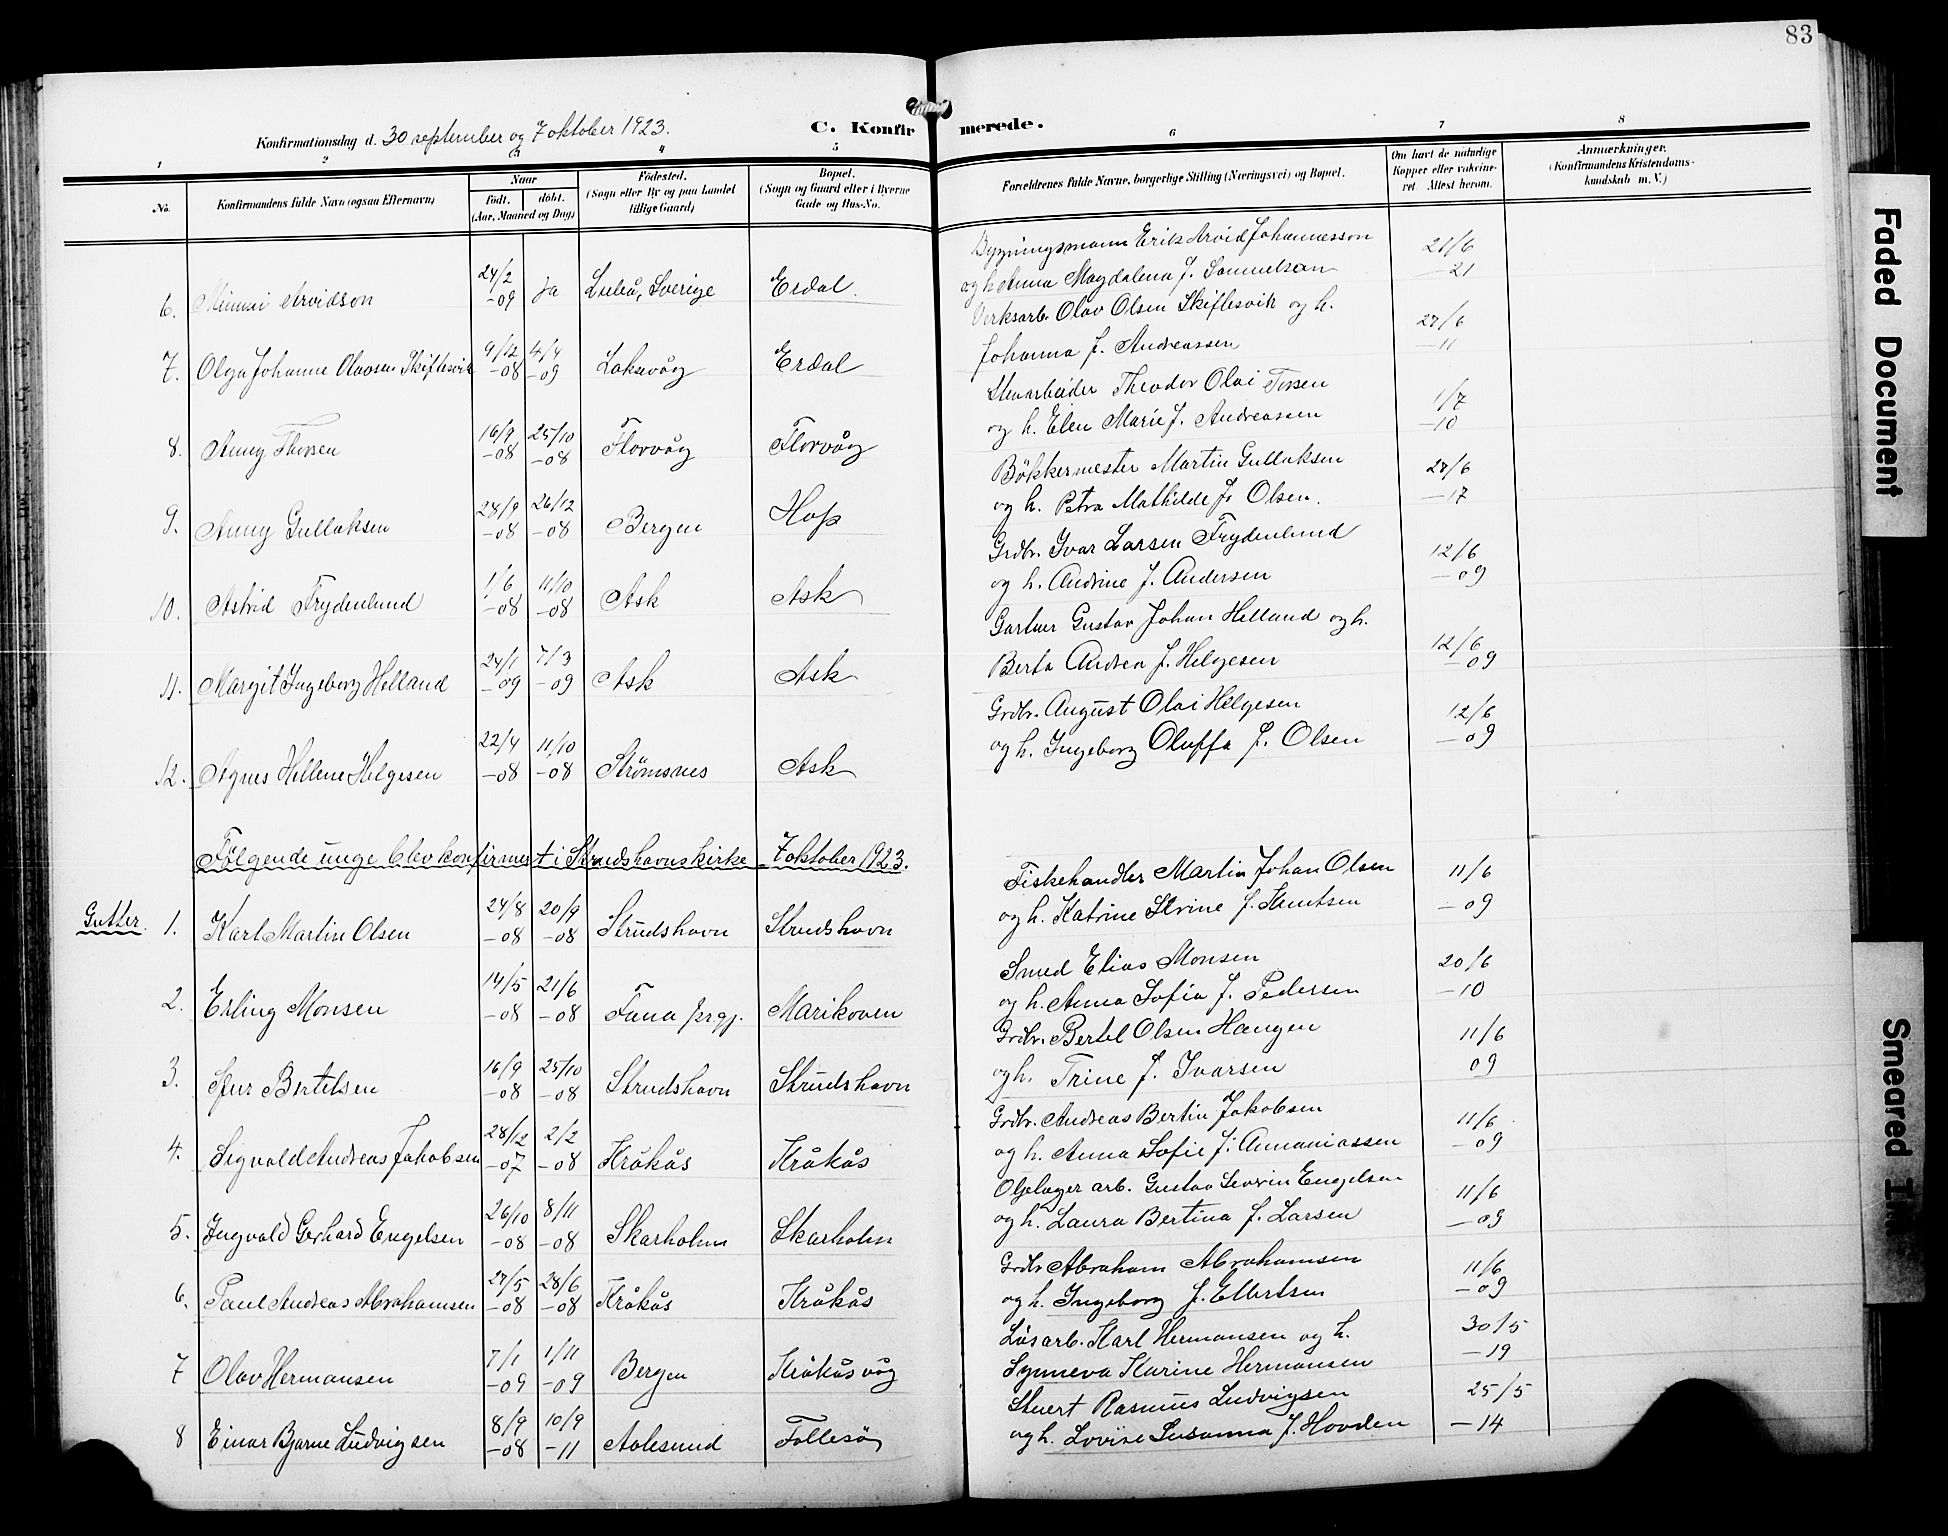 83
Konfirmationsdag d. 30 september og 7 oktober 1923. C. Konfirmerede.
1 2 3 4 5 6 7 8
No. Konfirmandens fulde Navn (ogsaa Efternavn) Naar født. døbt. (Aar, Maaned og Dag) Fødested. (Sogn eller By og paa Landet tillige Gaard) Bopæl. (Sogn og Gaard eller i Byerne Gade og Hus-No. Forældrenes fulde Navne, borgerlige Stilling (Næringsvei) og Bopæl. Om havt de naturlige Kopper eller vakcineret Attest herom. Anmærkninger. (Konfirmandens Kristendomskundskab m. V.)
Bygningsmann Erik Arvid Johannesson 21/6
6. Arvidson 24/2 -09 ja Luleå, Sverige Erdal. og h. Anna Magdalena f. Samuelson -21
Verksarb. Olav Olsen Skiftesvik og h. 27/6
7. Olga Johanne Olavsen Skiftesvik 9/12 -08 4/4 -09 Laksevåg Erdal Johanna f. Andreassen -11
Stenarbeider Theodor Olai Torsen 1/7
8. Anny Thorsen 16/9 -08 25/10 -08 Florvåg Florvåg og h. Elen Marie f. Andreassen -10
Bøkkermester Martin Gullaksen 27/6
9. Anny Gullaksen 24/9 -08 26/12 -08 Bergen Hop og h. Petra Mathilde f. Olsen. -17
Grdbr. Ivar Larsen Frydenlund 12/6
10. Astrid Frydenlund 1/6 -08 11/10 -08 Ask Ask og h. Andrine f. Andersen -09
Gartner Gustav Johan Helland og h. 12/6
11. Margit Ingeborg Helland 24/1 -09 7/3 -09 Ask Ask Berta Andrea f. Helgesen -09
Grdbr. August Olai Helgesen 12/6
12. Agnes Hellene Helgesen 22/4 -08 11/10 -08 Strømsnes Ask og h. Ingeborg Oluffa f. Olsen -09
Følgende unge blev konfirmert i Strudshavns kirke 7 oktober 1923.
Fiskehandler Martin Johan Olsen 11/6
Gutter. 1. Karl Martin Olsen 24/8 -08 20/9 -08 Strudshavn Strudshavn og h. Katrine Strine f. Knutsen -09
Smed Elias Monsen 20/6
2. Erling Monsen 14/5 -08 21/6 -08 Fana prgj. Marikoven og h. Anna Sofia f. Pedersen -10
Grdbr. Bertel Olsen Haugen 11/6
3. Bertelsen 16/9 -08 25/10 -08 Strudshavn Strudshavn og h. Trine f. Ivarsen 09
Grdbr. Andreas Bertin Jakobsen 11/6
4. Sigvald Andreas Jakobsen 28/12 -07 2/2 -08 Kråkås Kråkås og h. Anna Sofie f. Annaniassen -09
Oljelager arb. Gustav Severin Engelsen 11/6
5. Ingvald Gerhard Engelsen 26/10 -08 8/11 -08 Skarholm Skarholm og h. Laura Bertina f. Larsen -09
Grdbr Abraham Abrahamsen 11/6
6. Paul Andreas Abrahamsen 27/5 -08 28/6 -08 Kråkås Kråkås og h. Ingeborg f. Ellertsen -09
Løsarb. Karl Hermansen og h. 30/5
7 Olav Hermansen 7/1 -09 1/11 -09 Bergen Kråkåsvåg Synneva Karine Hermansen -19
Stuert Rasmus Ludvigsen 25/5
8 Einar Bjarne Ludvigsen 8/9 -08 10/9 -11 Aalesund Follesø og h. Lovise Susanna f. Hovden -14
Faded Document
Smeared